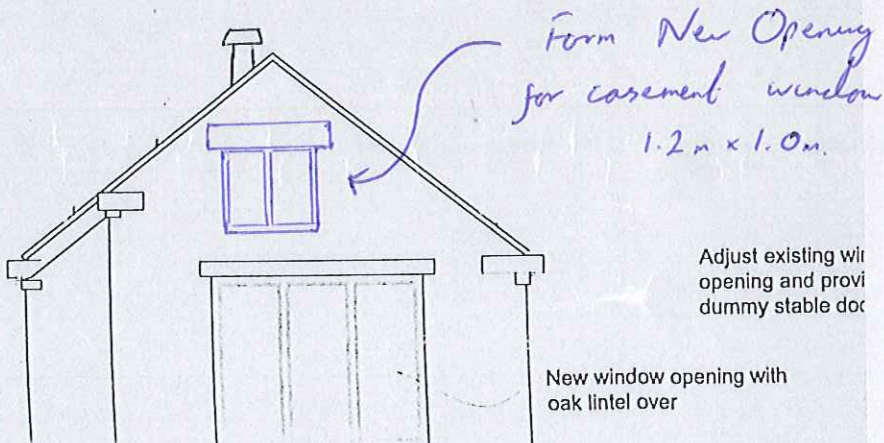 Form New Opening
for casement window
1.2m x 1.0m.
Adjust existing
opening and
dummy stable
New window opening with
oak lintel over